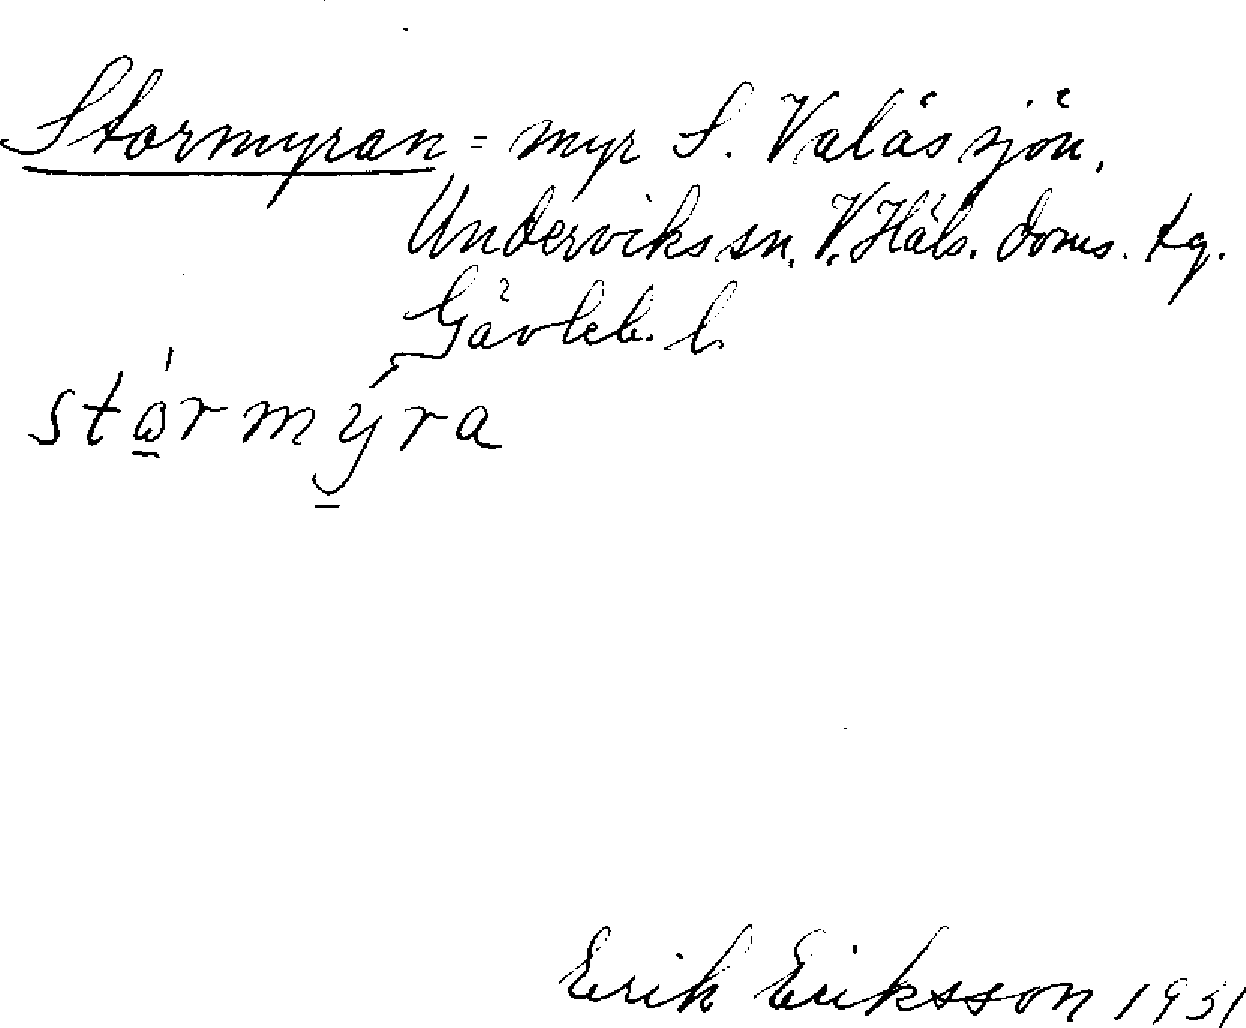 Stormyran = myr S. Valåssjön,
Undersvikssn. V. Häls. doms. tg.
Gävleb. l.
stọ́rmýra
Erik Eriksson 1931